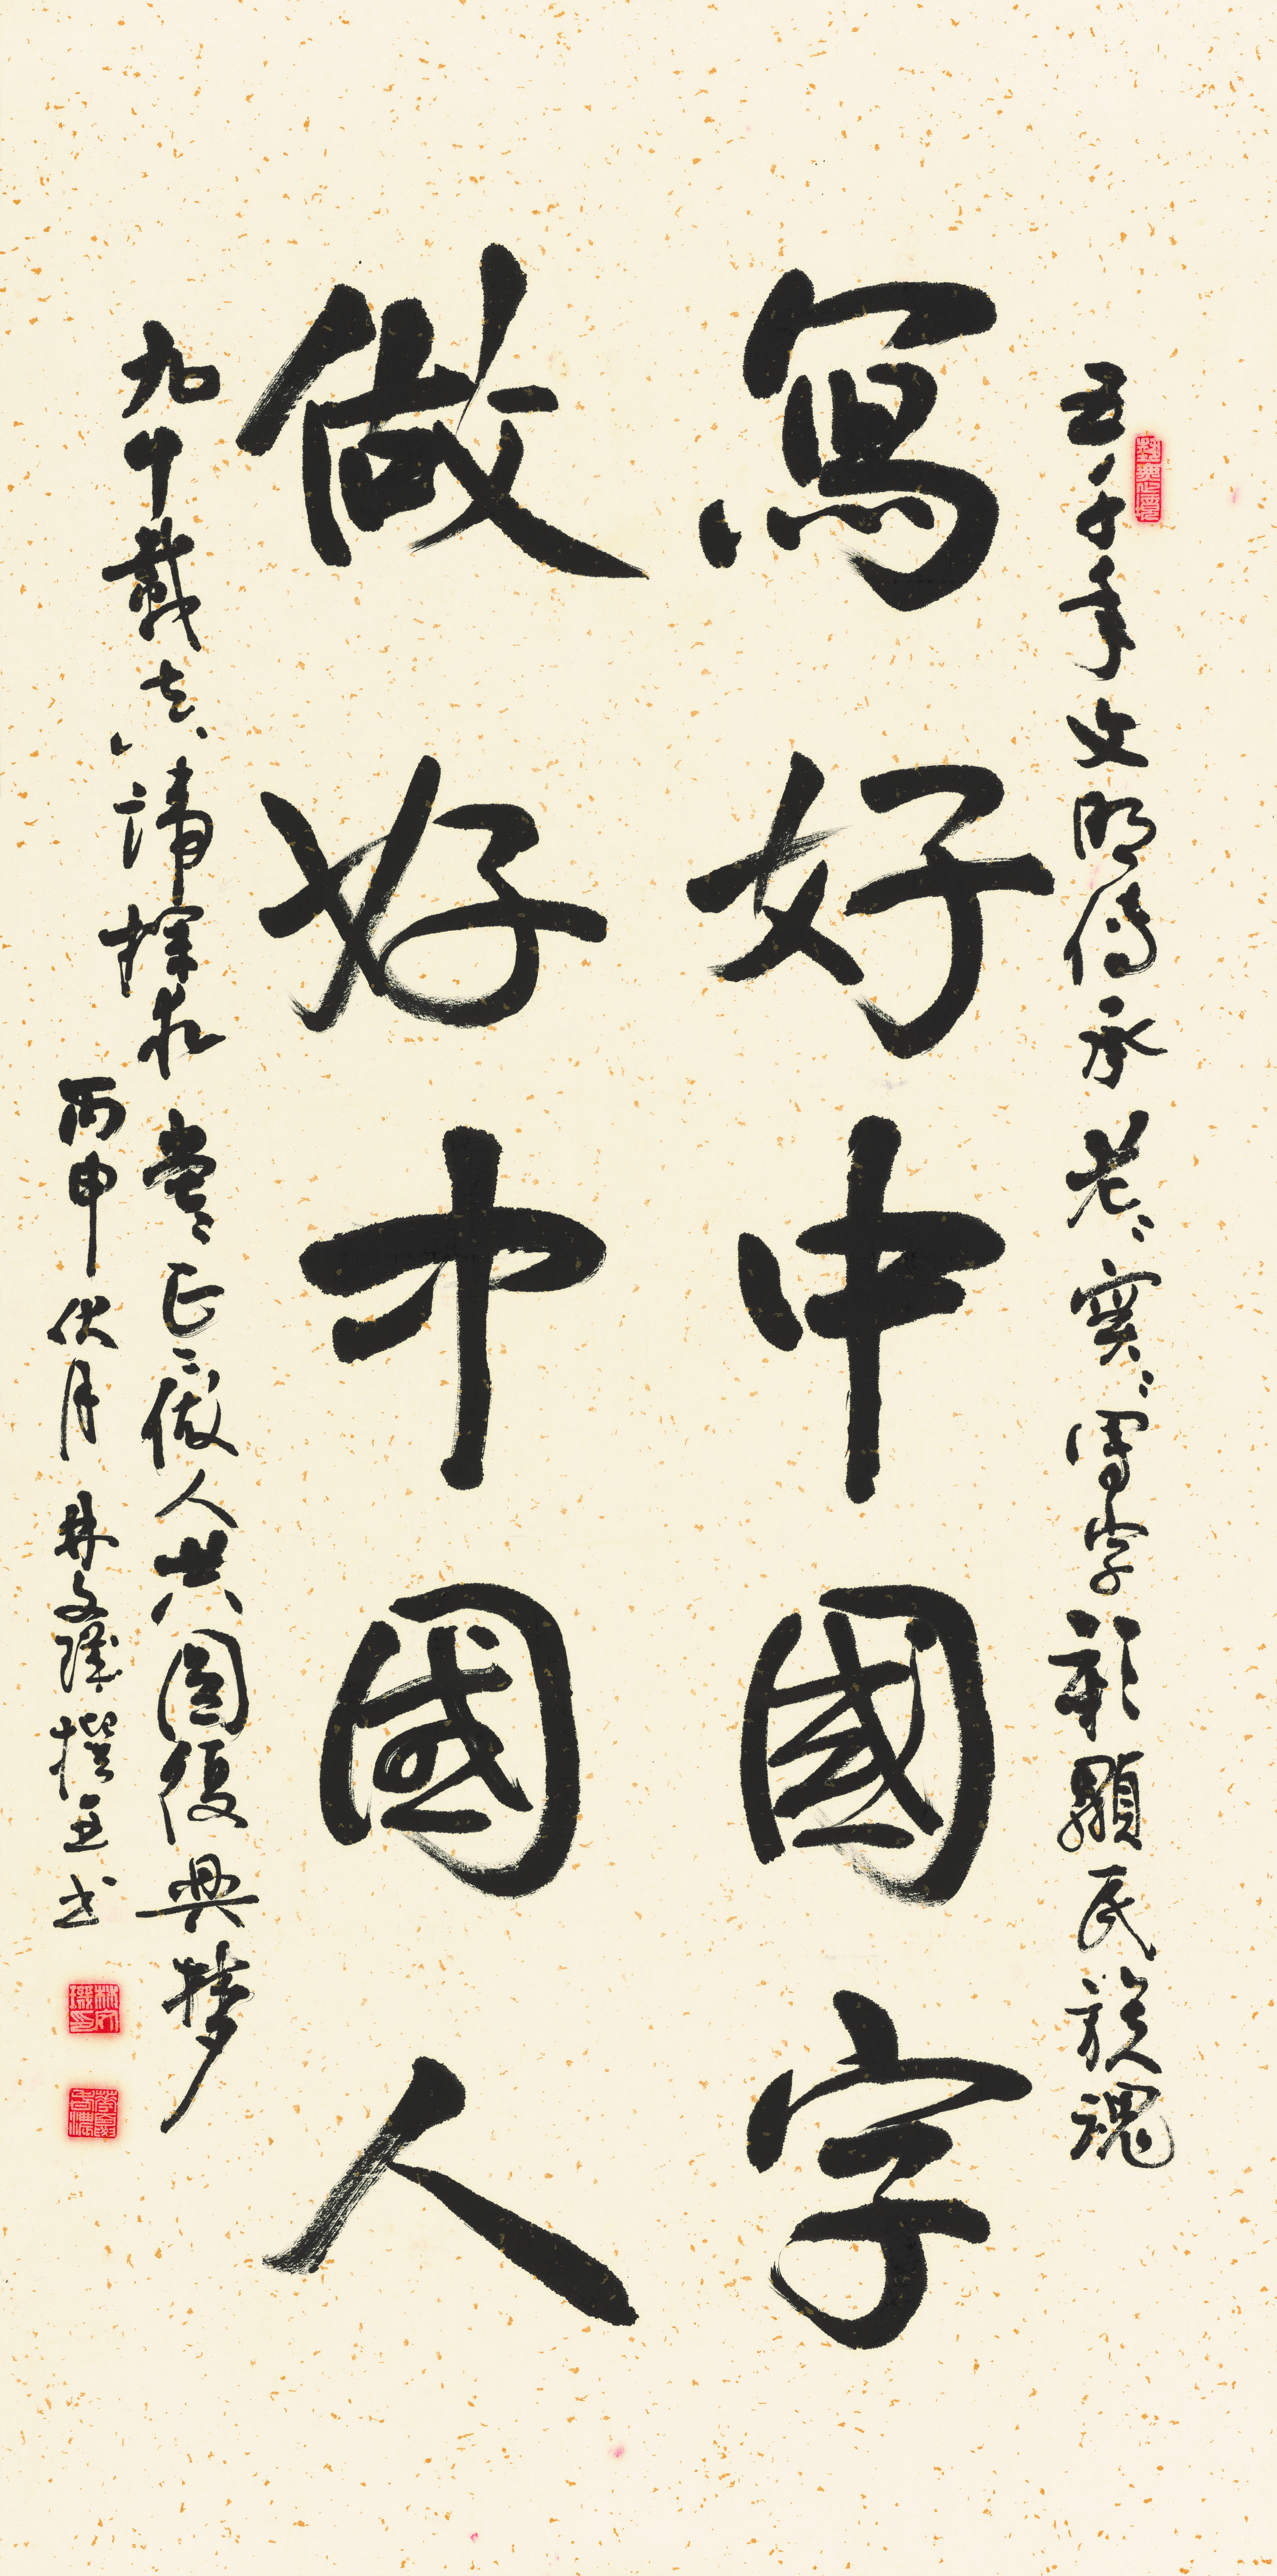 五千年文明傳承老老實實寫字彰顯民族魂
寫好中國字
做好中國人
九十載真諦探求堂堂正正做人共圓復興梦
丙申伏月林文璣撰并书